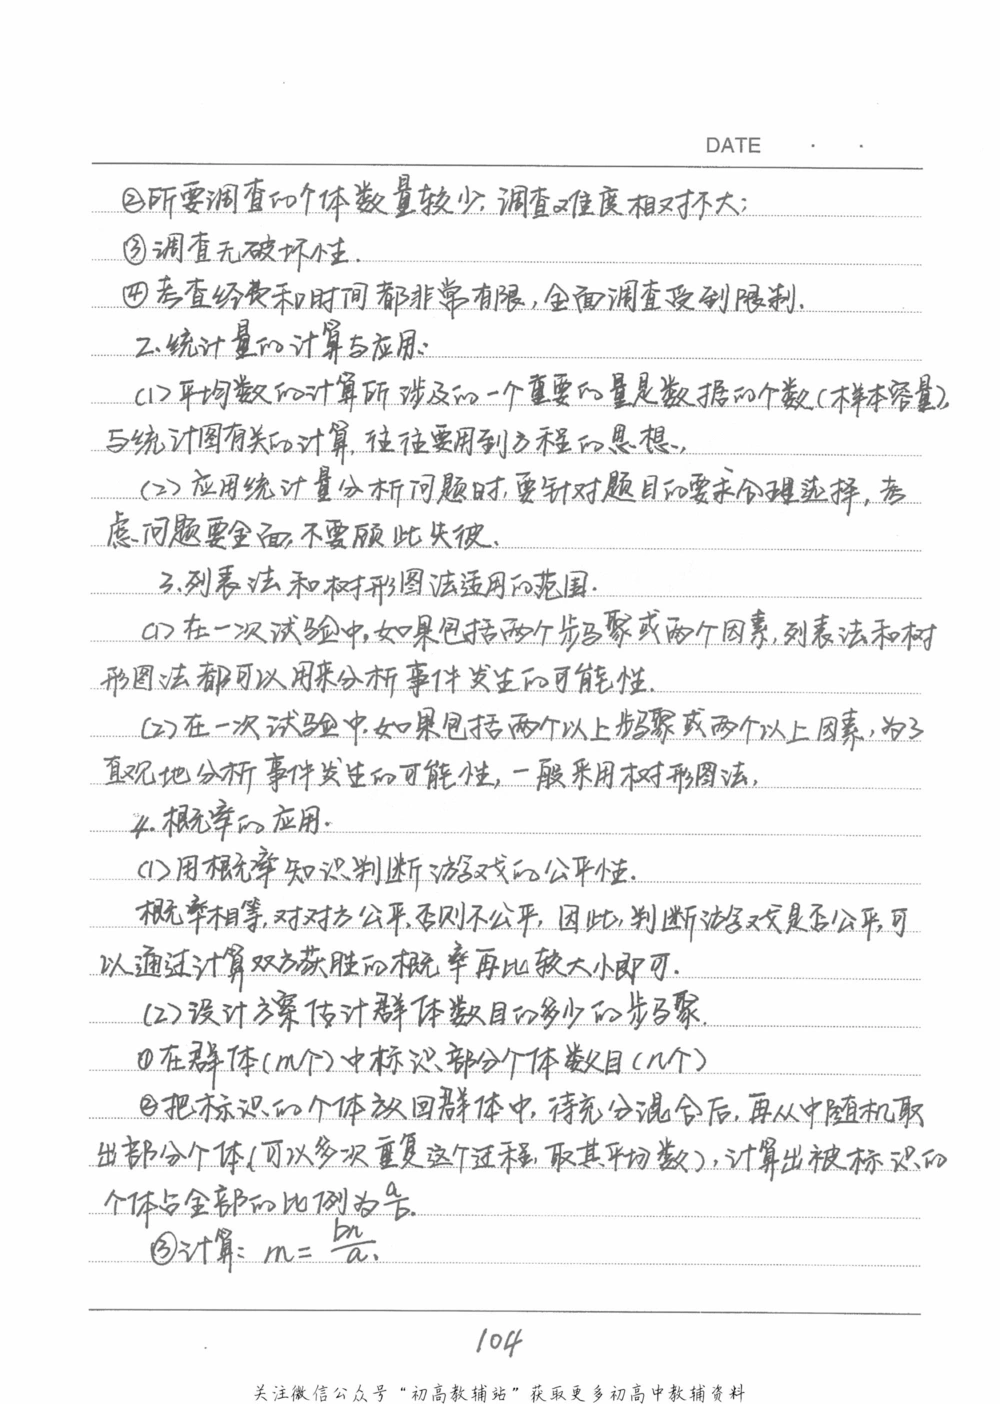 DATE · ·
②所要调查的个体数量较少,调查难度相对不大;
③调查无破坏性.
④考查经费和时间都非常有限,全面调查受到限制.
2.统计量的计算与应用:
(1)平均数的计算所涉及的一个重要的量是数据的个数(样本容量),
与统计图有关的计算,往往要用到方程的思想.
(2)应用统计量分析问题时,要针对题目的要求合理选择,考
虑问题要全面,不要顾此失彼.
3.列表法和树形图法适用的范围.
(1)在一次试验中,如果包括两个步骤或两个因素,列表法和树
形图法都可以用来分析事件发生的可能性.
(2)在一次试验中,如果包括两个以上步骤或两个以上因素,为了
直观地分析事件发生的可能性,一般采用树形图法.
4.概率的应用.
(1)用概率知识判断游戏的公平性.
概率相等,对对方公平,否则不公平,因此,判断游戏是否公平,可
以通过计算双方获胜的概率再比较大小即可.
(2)设计方案估计群体数目的多少的步骤.
①在群体(m个)中标识部分个体数目(n个)
②把标识的个体放回群体中,待充分混合后,再从中随机取
出部分个体(可以多次重复这个过程,取其平均数),计算出被标识的
个体占全部的比例为a/b.
③计算: m=bn/a.
104
关注微信公众号“初高教辅站”获取更多初高中教辅资料